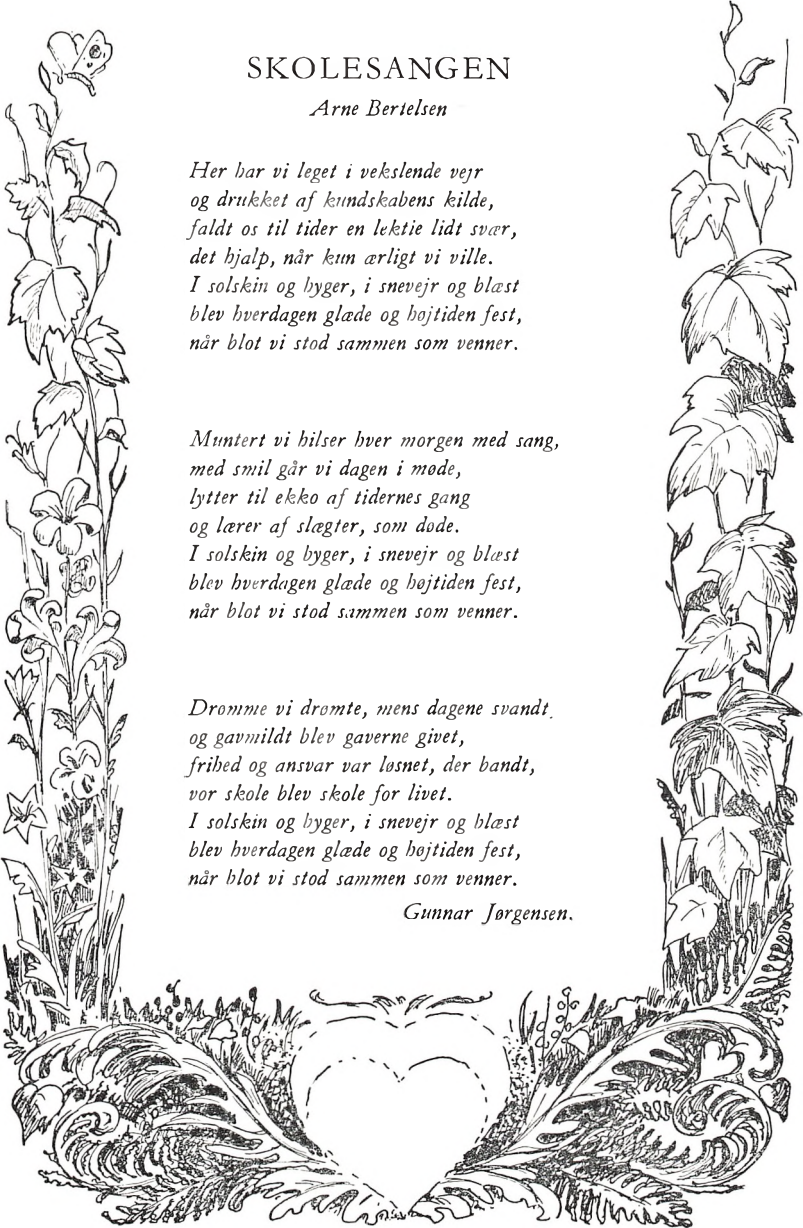 SKOLESANGEN
Arne Bertelsen
Her har vi leget i vekslende vejr
og drukket af kundskabens kilde,
faldt os til tider en lektie lidt svær,
det hjalp, når kun ærligt vi ville.
I solskin og byger, i snevejr og blæst
blev hverdagen glæde og højtiden fest,
når blot vi stod sammen som venner.
Muntert vi hilser hver morgen med sang,
med smil går vi dagen i møde,
lytter til ekko af tidernes gang
og lærer af slægter, som døde.
I solskin og byger, i snevejr og blæst
blev hverdagen glæde og højtiden fest,
når blot vi stod sammen som venner.
Drømme vi drømte, mens dagene svandt,
og gavmildt blev gaverne givet,
frihed og ansvar var løsnet, der bandt,
vor skole blev skole for livet.
I solskin og byger, i snevejr og blæst
blev hverdagen glæde og højtiden fest,
når blot vi stod sammen som venner.
Gunnar Jørgensen.